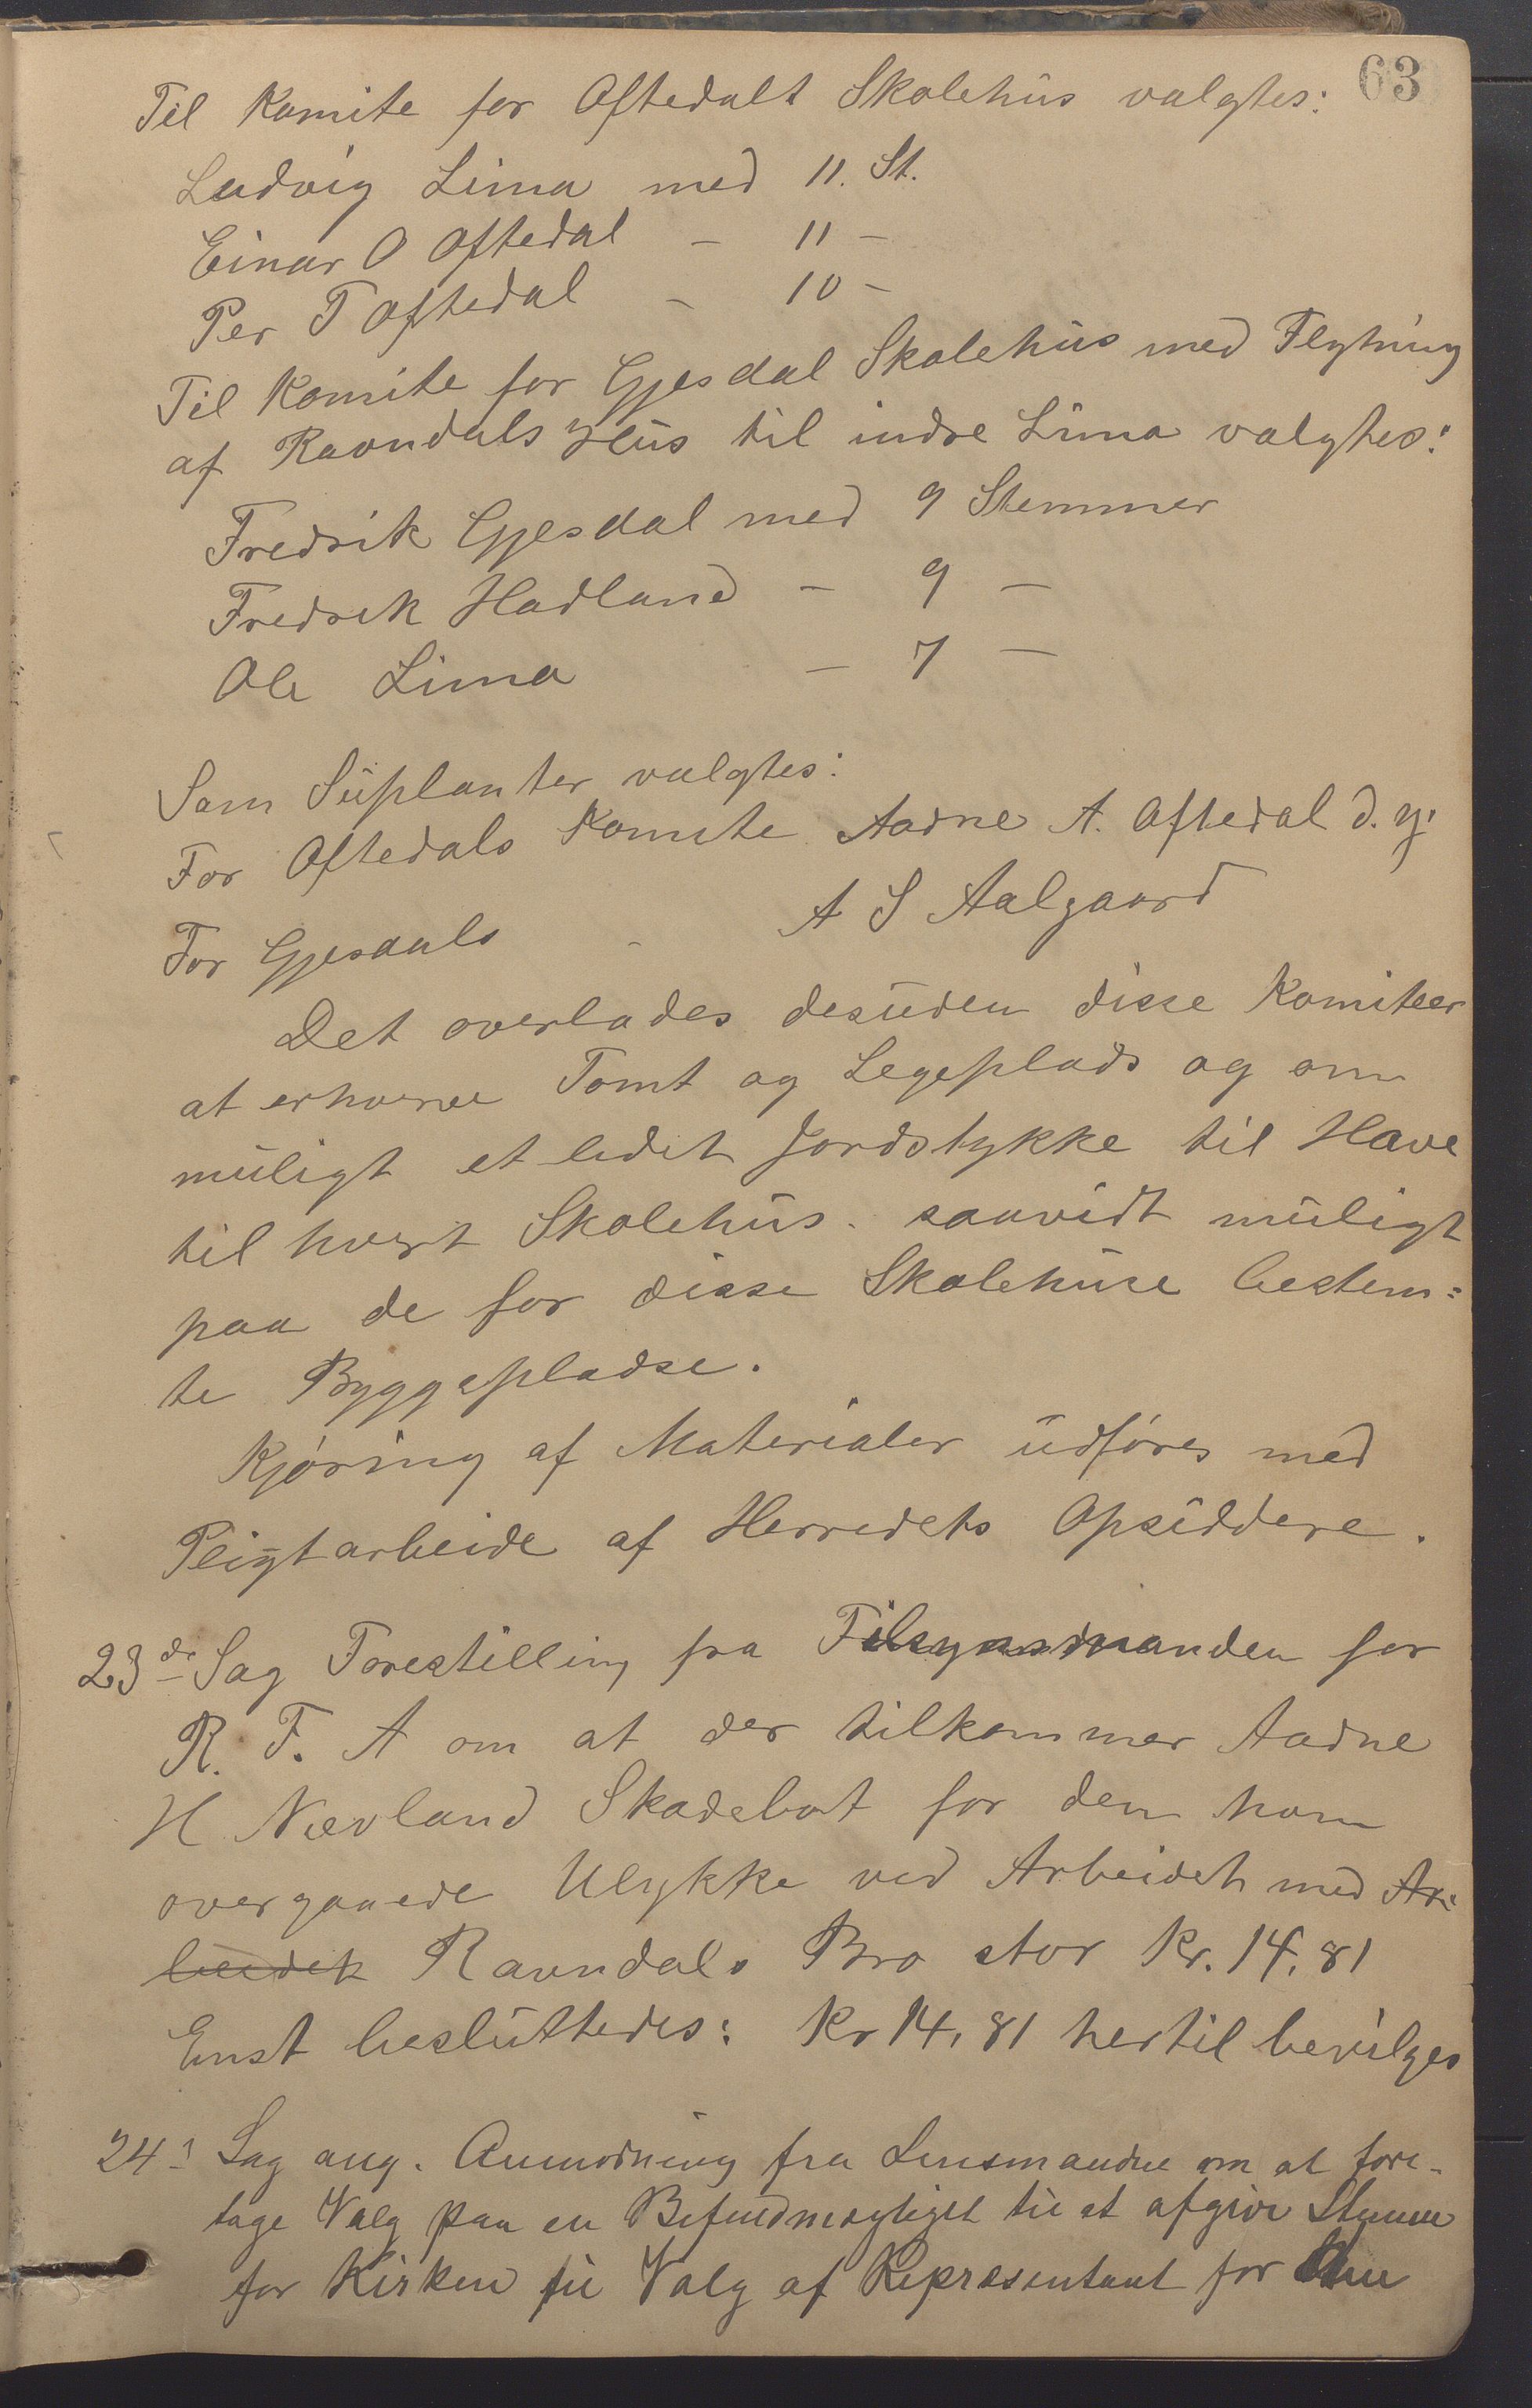 63
Til Komite for Oftedalt Skolehus valgtes:
Ludvig Lima med 11. St.
Einar O Oftedal – 11 –
Per T Oftedal – 10 –
Til Komite for Gjesdal Skolehus med Flytning
af Ravndals Hus til indre Lima valgtes:
Fredrik Gjesdal med 9 Stemmer
Fredrik Hadland – 9 –
Ole Lima – 7 –
Som Suplanter valgtes:
For Oftedals Komite Aadne A. Oftedal d. y.
For Gjesdals – A S Aalgaard
Det overlades desuden disse Komiteer
at erhverve Tomt og Legeplads og om
muligt et lidet Jordstykke til Have
til hvert Skolehus. saavidt muligt
paa de for disse Skolehuse bestem:
te Byggepladse.
Kjøring af Materialer udføres med
Pligtarbeide af Herredets Opsiddere.
23de Sag Forestilling fra Tilsynsmanden for
R. F. A om at der tilkommer Aadne
H Nævland Skadebot for den ham
overgaaede Ulykke ved Arbeidet med Ar:
beidet Ravndals Bro stor Kr. 14,81
Enst besluttedes: Kr 14,81 hertil bevilges
24: Sag ang. Anmodning fra Lensmanden om at fore-
tage Valg paa en Befuldmægtiget til at afgive Stemme
for Kirken til Valg af Repræsentant for